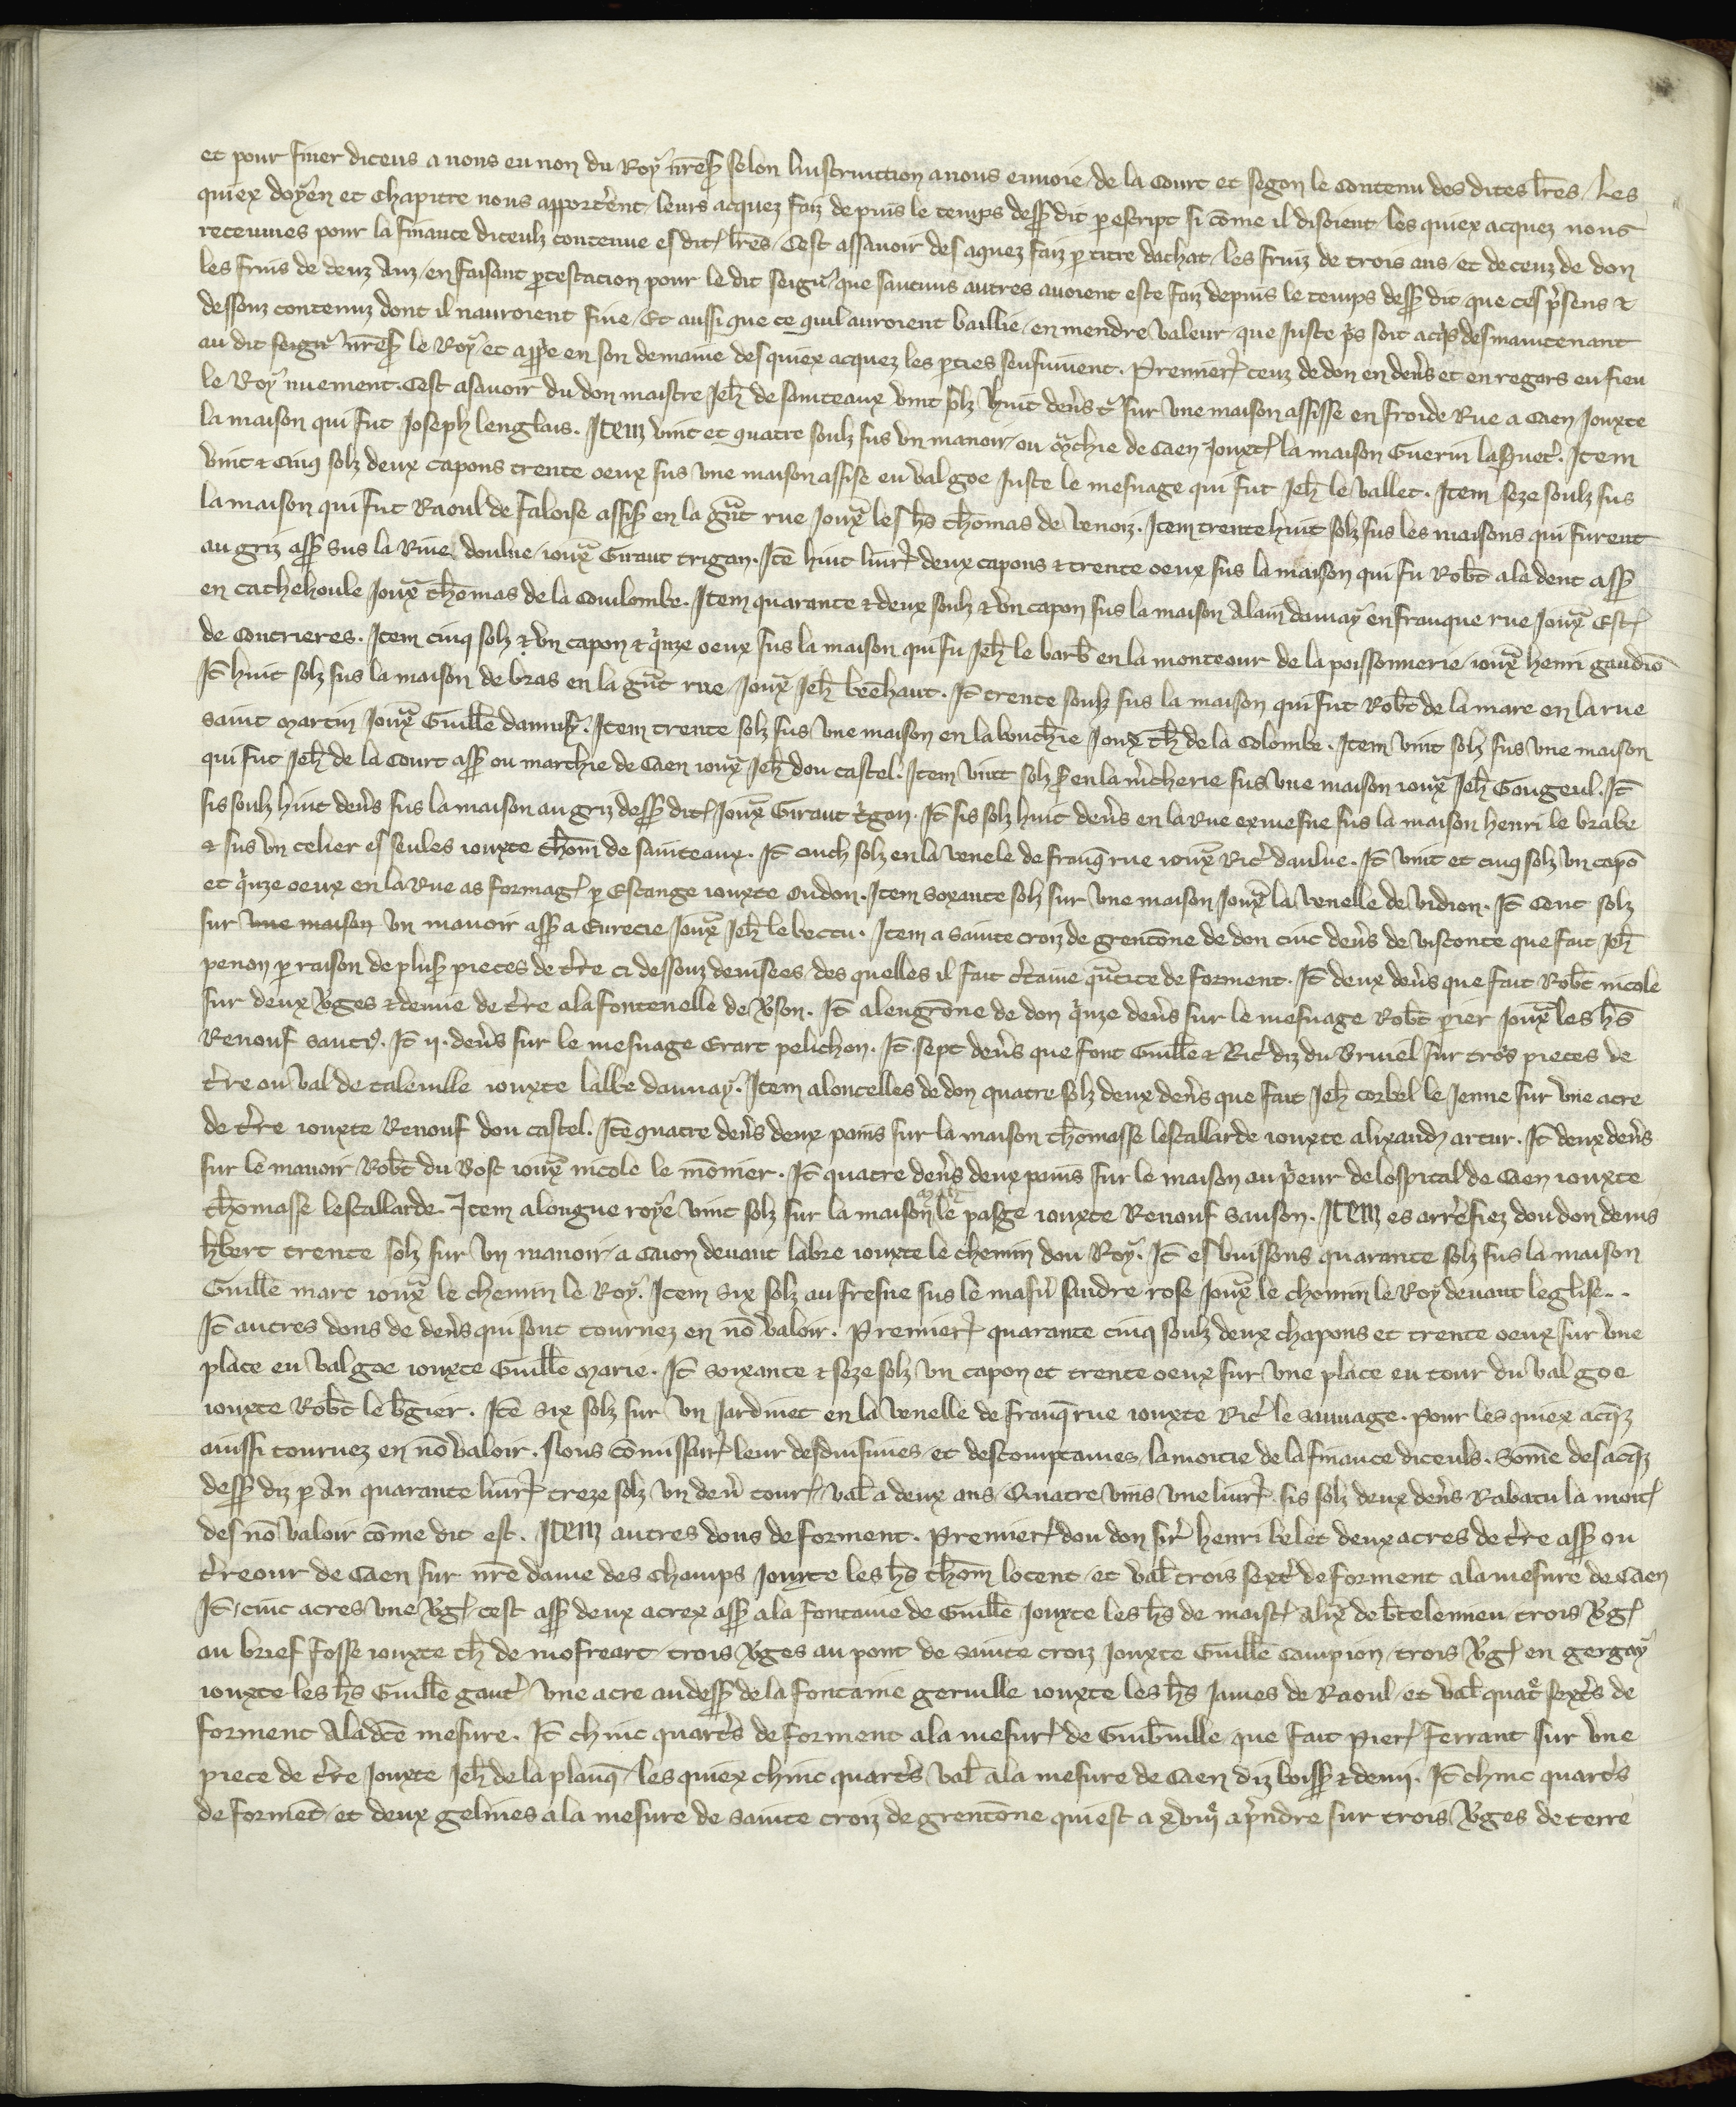 et pour finer diceus a nous en non du Roy nr̃e sẽ selon linstruiction a nous enuoie de la Court et segon le contenu des dites lr̃es / Les
quiex doyen et Chapitre nous apportẽent / leurs acquez faiz depuis le temps dess̃ dit p escript si cõme il disoient / les quiex acquez nous
receumes pour la finance diceulz contenue es dit lr̃es / Cest assauoir des aquez faiz p titre dachat / les fruiz de trois ans / et de ceuz de don
les fruis de deuz Anz / en faisant p̃testacion pour le dit seigñ / que saucuns autres auoient este faiz depuis le temps dess̃ dit que ces p̃sens &
dessouz contenuz dont il nauroient fine / Et aussi que ce quil auroient baillie / en mendre valeur / que Juste p̃s soit acq̃s desmaintenant
au dit seigñ nr̃e s̃ le Roy et app̃e en son demaine des quiex acquez les pties sensuiuent . Premier ceuz de don en den̄s et en regars en fieu
le Roy nuement . Cest asauoir du don maistre Jeh̄ de sainteaux vint solz huit den̄s t̃ sur vne maison assisse en froide Rue a Caen Jouxte
la maison qui fut Joseph lenglais . Item vint et quatre soulz sus vn manoir / ou m̃chie de Caen Jouxt la maison Guerin . Item
vint & Cinq solz deux capons trente oeux sus vne maison assise eu val goe Juste le mesnage qui fut Jeh̄ le vallet . Item seze soulz sus
la maison qui fut Raoul de faloise assis̃ en la gñt rue Joux̃ les h̄s thomas de venoiz . Item trente huit solz sus les maisons qui furent
au griz ass̃ sus la Riue doulne / ioux̃ Giraut trigan . Itẽ huit liur̃ deux capons & trente oeux sus la maison qui fu Rob̄t ala dent ass̃
en cathehoule Joux̃ thomas de la Coulombe . Item quarante & deux soulz & vn capon sus la maison Alain daunay en franque rue Joux̃ Est
de Coutrieres . Item cinq solz & vn capon & q̃nze oeux sus la maison qui fu Jeh̄ le barb̄ en la monteour de la poissonnerie / ioux̃ henri gaudiõ
It̄ huit solz sus la maison de bras en la gñt rue / Joux̃ Jeh̄ . It̄ trente soulz sus la maison qui fut Rob̄t de la mare en la rue
saint martin Joux̃ Guillē . Item trente solz sus vne maison en la bouch̄ie Joux̃ th̄ de la Colombe . Item vint solz sus vne maison
qui fut Jeh̄ de la Court ass̃ ou marchie de Caen ioux̃ Jeh̄ dou castel . Item vint solz en la m̃cherie sus vne maison ioux̃ Jeh̄ Gougeul . It̄
sis soulz huit den̄s sus la maison au griz dess̃ dit Joux̃ Giraut t̃gan . It̄ sis solz huit den̄s en la Rue exmesne sus la maison henri le brabe
& sus vn celier es seules iouxte thom̄ de sainteaux . It̄ cinch solz en la venele de franq̃ rue ioux̃ Ric̃ daulne . It̄ vint et cinq solz vn capõ
et q̃nze oeux en la Rue as formag p Estange iouxte Oudon . Item soxante solz sur vne maison Joux̃ la venelle de vidion . It̄ Cent solz
sur vne maison vn manoir ass̃ a Eurecie Joux̃ Jeh̄ le bectu . Item a sainte croiz de grentõne de don cinc den̄s de visconte que fait Jeh̄
penon p raison de plus̃ pieces de t̃re ci dessouz deuisees / des quelles il fait c̃taine q̃ntite de forment . It̄ deux den̄s que fait Rob̄t nicole
sur deux v̄ges & demie de t̃re a la fontenelle de . It̄ a lengrõne de don q̃nze den̄s sur le mesnage Rob̄t pier Joux̃ les h̄s
Renouf . It̄ ij . den̄s sur le mesnage Erart pelichon . It̄ sept den̄s que font Guillē & Ric̃ diz du bruiel sur trois pieces de
t̃re ou val de taleuille iouxte labbe daunay . Item aloucelles de don quatre solz deux den̄s que fait Jeh̄ corbel le Jenne sur vne acre
de t̃re iouxte Renouf dou castel . Itẽ quatre den̄s deux pains sur la maison thomasse lescallarde iouxte alixand artur . It̄ deux den̄s
sur le manoir Rob̄t du bosc ioux̃ nicole le mõnier . It̄ quatre den̄s deux pains sur le maison au p̃eur de lospital de Caen iouxte
thomasse lescallarde . Item alongue roye vint solz sur la maison le pasge iouxte Renouf sanson . Item es arrefiez dou don denis
h̄bert trente solz sur vn manoir a Caion deuant labre iouxte le chemin dou Roy . It̄ es buissons quarante solz sus la maison
Guillē marc ioux̃ le chemin le Roy . Item six solz au fresne sus le masur̃ sandre rose Joux̃ le chemin le Roy deuant leglise . .
It̄ autres dons de den̄s qui sont tournez en nõ valoir . Premier̃ quarante cinq soulz deux chapons et trente oeux sur vne
place eu val goe iouxte Guillē marie . It̄ soixante & seze solz vn capon et trente oeux sur vne place eu tour du val goe
iouxte Rob̄t le b̄gier . Itẽ six solz sur vn Jardinet en la venelle de franq̃ rue iouxte Ric̃ le sauuage . pour les quiex acq̃z
auissi tournez en nõ valoir . Nous cõmissair leur desduisimes et descomptames / la moitie de la finance diceuls . Sõme des acq̃z
dess̃ diz p An quarante liur̃ treze solz vn den̄ tour / val a deux ans Quatre vins vne liur̃ sis solz deux den̄s Rabatu la moit
des nõ valoir cõme dit est . Item autres dons de forment . Premier dou don sir̃ henri belet deux acres de t̃re ass̃ ou
t̃reour de Caen sur nr̃e dame des champs Jouxte les h̄s thom̄ locent / et val̄ trois sext̃ de forment a la mesure de Caen
It̄ / cinc acres vne v̄g / cest ass̃ deux acrex ass̃ a la fontaine de Guillē Jouxte les h̄s de maist alix̃ de b̄telemieu / trois v̄g
au brief fosse iouxte th̄ de mofreart / trois v̄ges au pont de sainte croiz Jouxte Guillē Campion / trois v̄g en gergay
iouxte les h̄s Guillē gaut̃ / vne acre au dess̃ de la fontaine geruille iouxte les h̄s James de Raoul / et val̄ quat̃ sext̃s de
forment A la dc̄e mesure . It̄ chinc quart̃s de forment a la mesur de Guib̄uille que fait pier ferrant sur vne
piece de t̃re Jouxte Jeh̄ de la planq̃ / les quiex chinc quart̃s val̄ a la mesure de Caen diz boiss̃ & demj . It̄ chinc quart̃s
de formēt / et deux gelines a la mesure de sainte croiz de grentõne qui est a xviij ap̃ndre sur trois v̄ges de terre